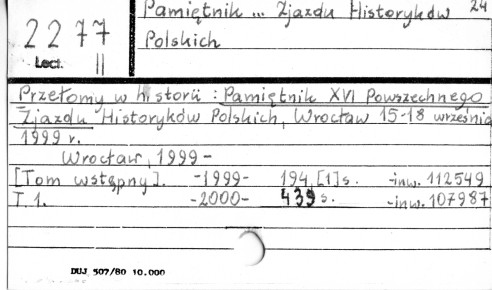 Pamiętnik ... Zjazdu Historyków 24
Polskich
2277
Lect. II
Przełomy w historii : Pamiętnik XVI Powszechnego
Zjazdu Historyków Polskich, Wrocław 15-18 września
1999 r.
Wrocław, 1999 -
[Tom wstępny]. -1999- 194,[1]s. -inw. 112549
T. 1. -2000- 439 s. -inw. 107987
DUJ 507/80 10.000